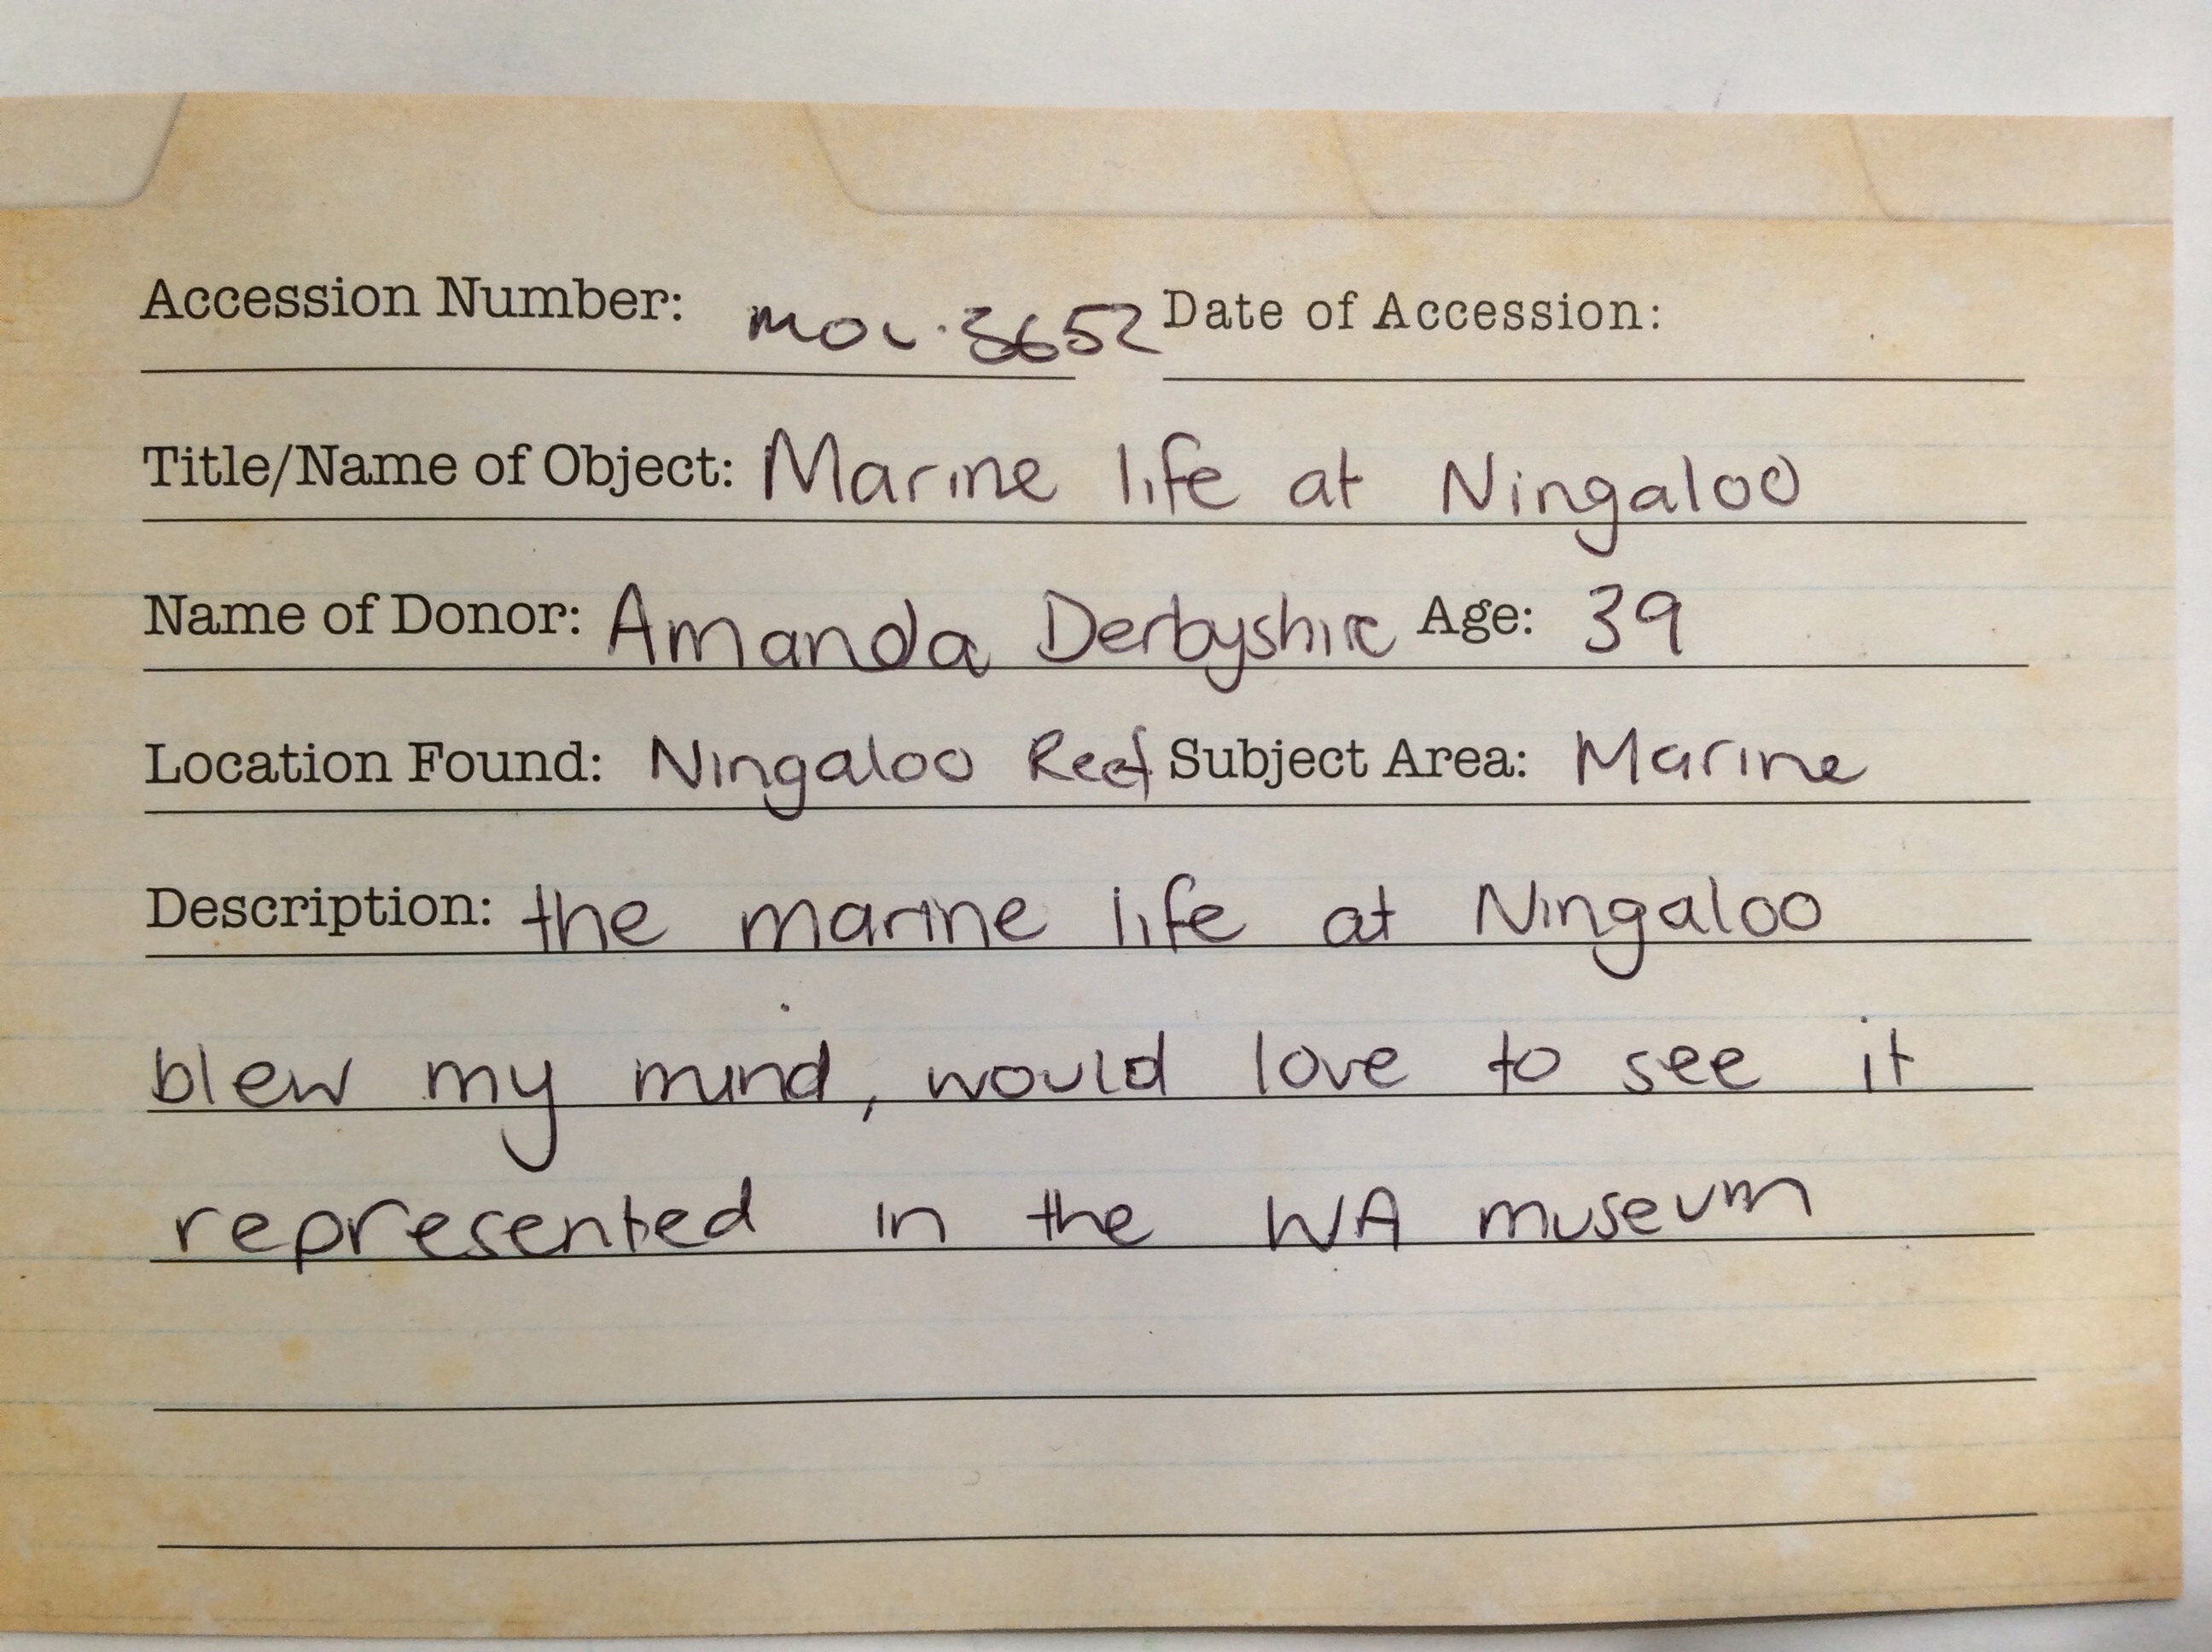 Accession Number: MOV.3652 Date of Accession:
Title/Name of Object: Marine life at Ningaloo
Name of Donor: Amanda Derbyshire Age: 39
Location Found: Ningaloo Reef Subject Area: Marine
Description: the marine life at Ningaloo
blew my mind, would love to see it
represented in the WA museum